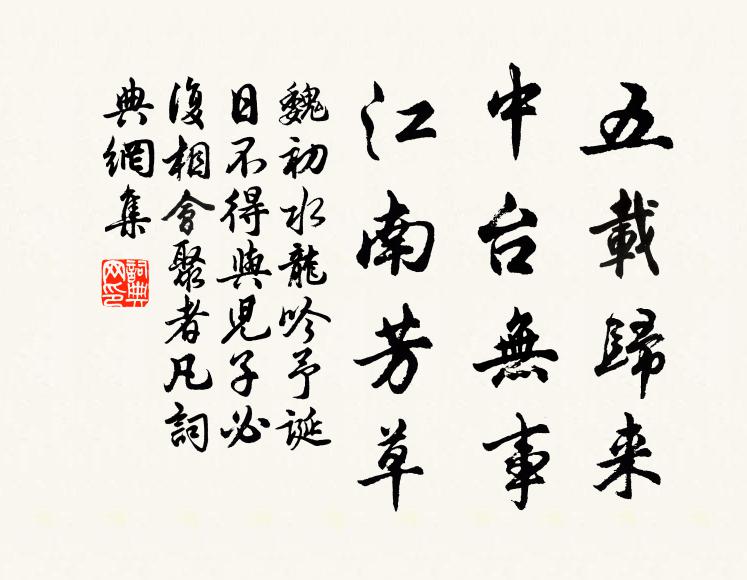 五載歸来
中台無事
江南芳草
魏初水龍吟予誕
日不得與児子必
復相會聚者凡詞
典網集
詞典
网印